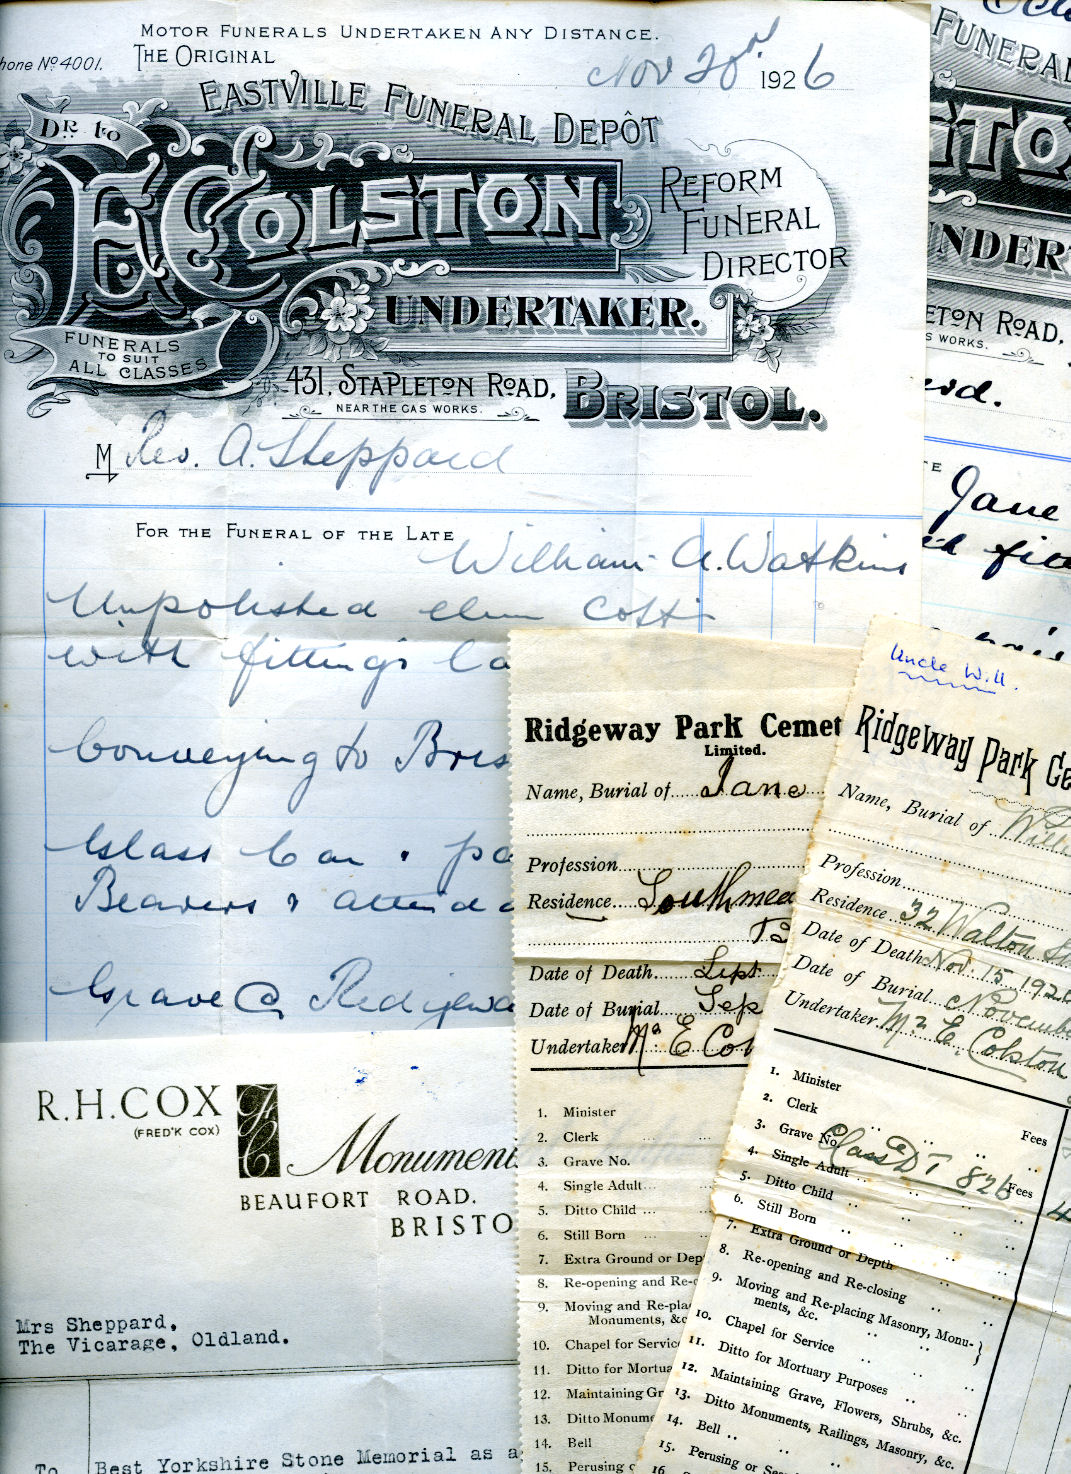 MOTOR FUNERALS UNDERTAKEN ANY DISTANCE.
hone Nº 4001.
THE ORIGINAL
Nov 20 1926
EASTVILLE FUNERAL DEPÔT
DR to
E. COLSTON
REFORM
FUNERAL
DIRECTOR
UNDERTAKER.
FUNERALS
TO SUIT
ALL CLASSES
431, STAPLETON ROAD,
NEAR THE GAS WORKS.
BRISTOL.
M Rev. A. Sheppard
FOR THE FUNERAL OF THE LATE
William A. Watkins
Unpolished elm Coffin
with fittings
Conveying to Bris
Glass Car
Bearers & attend
Grave @
FUNERAL
STO
UNDERT
ETON ROAD,
S WORKS.
TE
Jane
R.H.COX
(FRED'K COX)
FC
Monument
BEAUFORT ROAD.
BRISTO
Mrs Sheppard,
The Vicarage, Oldland.
To
Best Yorkshire Stone Memorial as a
Ridgeway Park Cemet
Limited.
Name, Burial of Jane
Profession
Residence Southmea
Date of Death Sept
Date of Burial Sep
Undertaker Mr E Col
1. Minister
2. Clerk
3. Grave No.
4. Single Adult
5. Ditto Child
6. Still Born
7. Extra Ground or Dep
8. Re-opening and Re-c
9. Moving and Re-pla
Monuments, &c
10. Chapel for Servic
11. Ditto for Mortua
12. Maintaining Gr
13. Ditto Monume
14. Bell
15. Perusing o
Uncle Will.
Ridgeway Park Ce
Name, Burial of Willi
Profession
Residence 32 Walton St
Date of Death Nov. 15 1926
Date of Burial November
Undertaker Mr E. Colston
1. Minister
2. Clerk
Fees
3. Grave No. Class D T 826
4. Single Adult
Fees
5. Ditto Child
6. Still Born
7. Extra Ground or Depth
8. Re-opening and Re-closing
9. Moving and Re-placing Masonry, Monu-
ments, &c.
10. Chapel for Service
11. Ditto for Mortuary Purposes
12. Maintaining Grave, Flowers, Shrubs, &c.
13. Ditto Monuments, Railings, Masonry, &c.
14. Bell
15. Perusing or
16